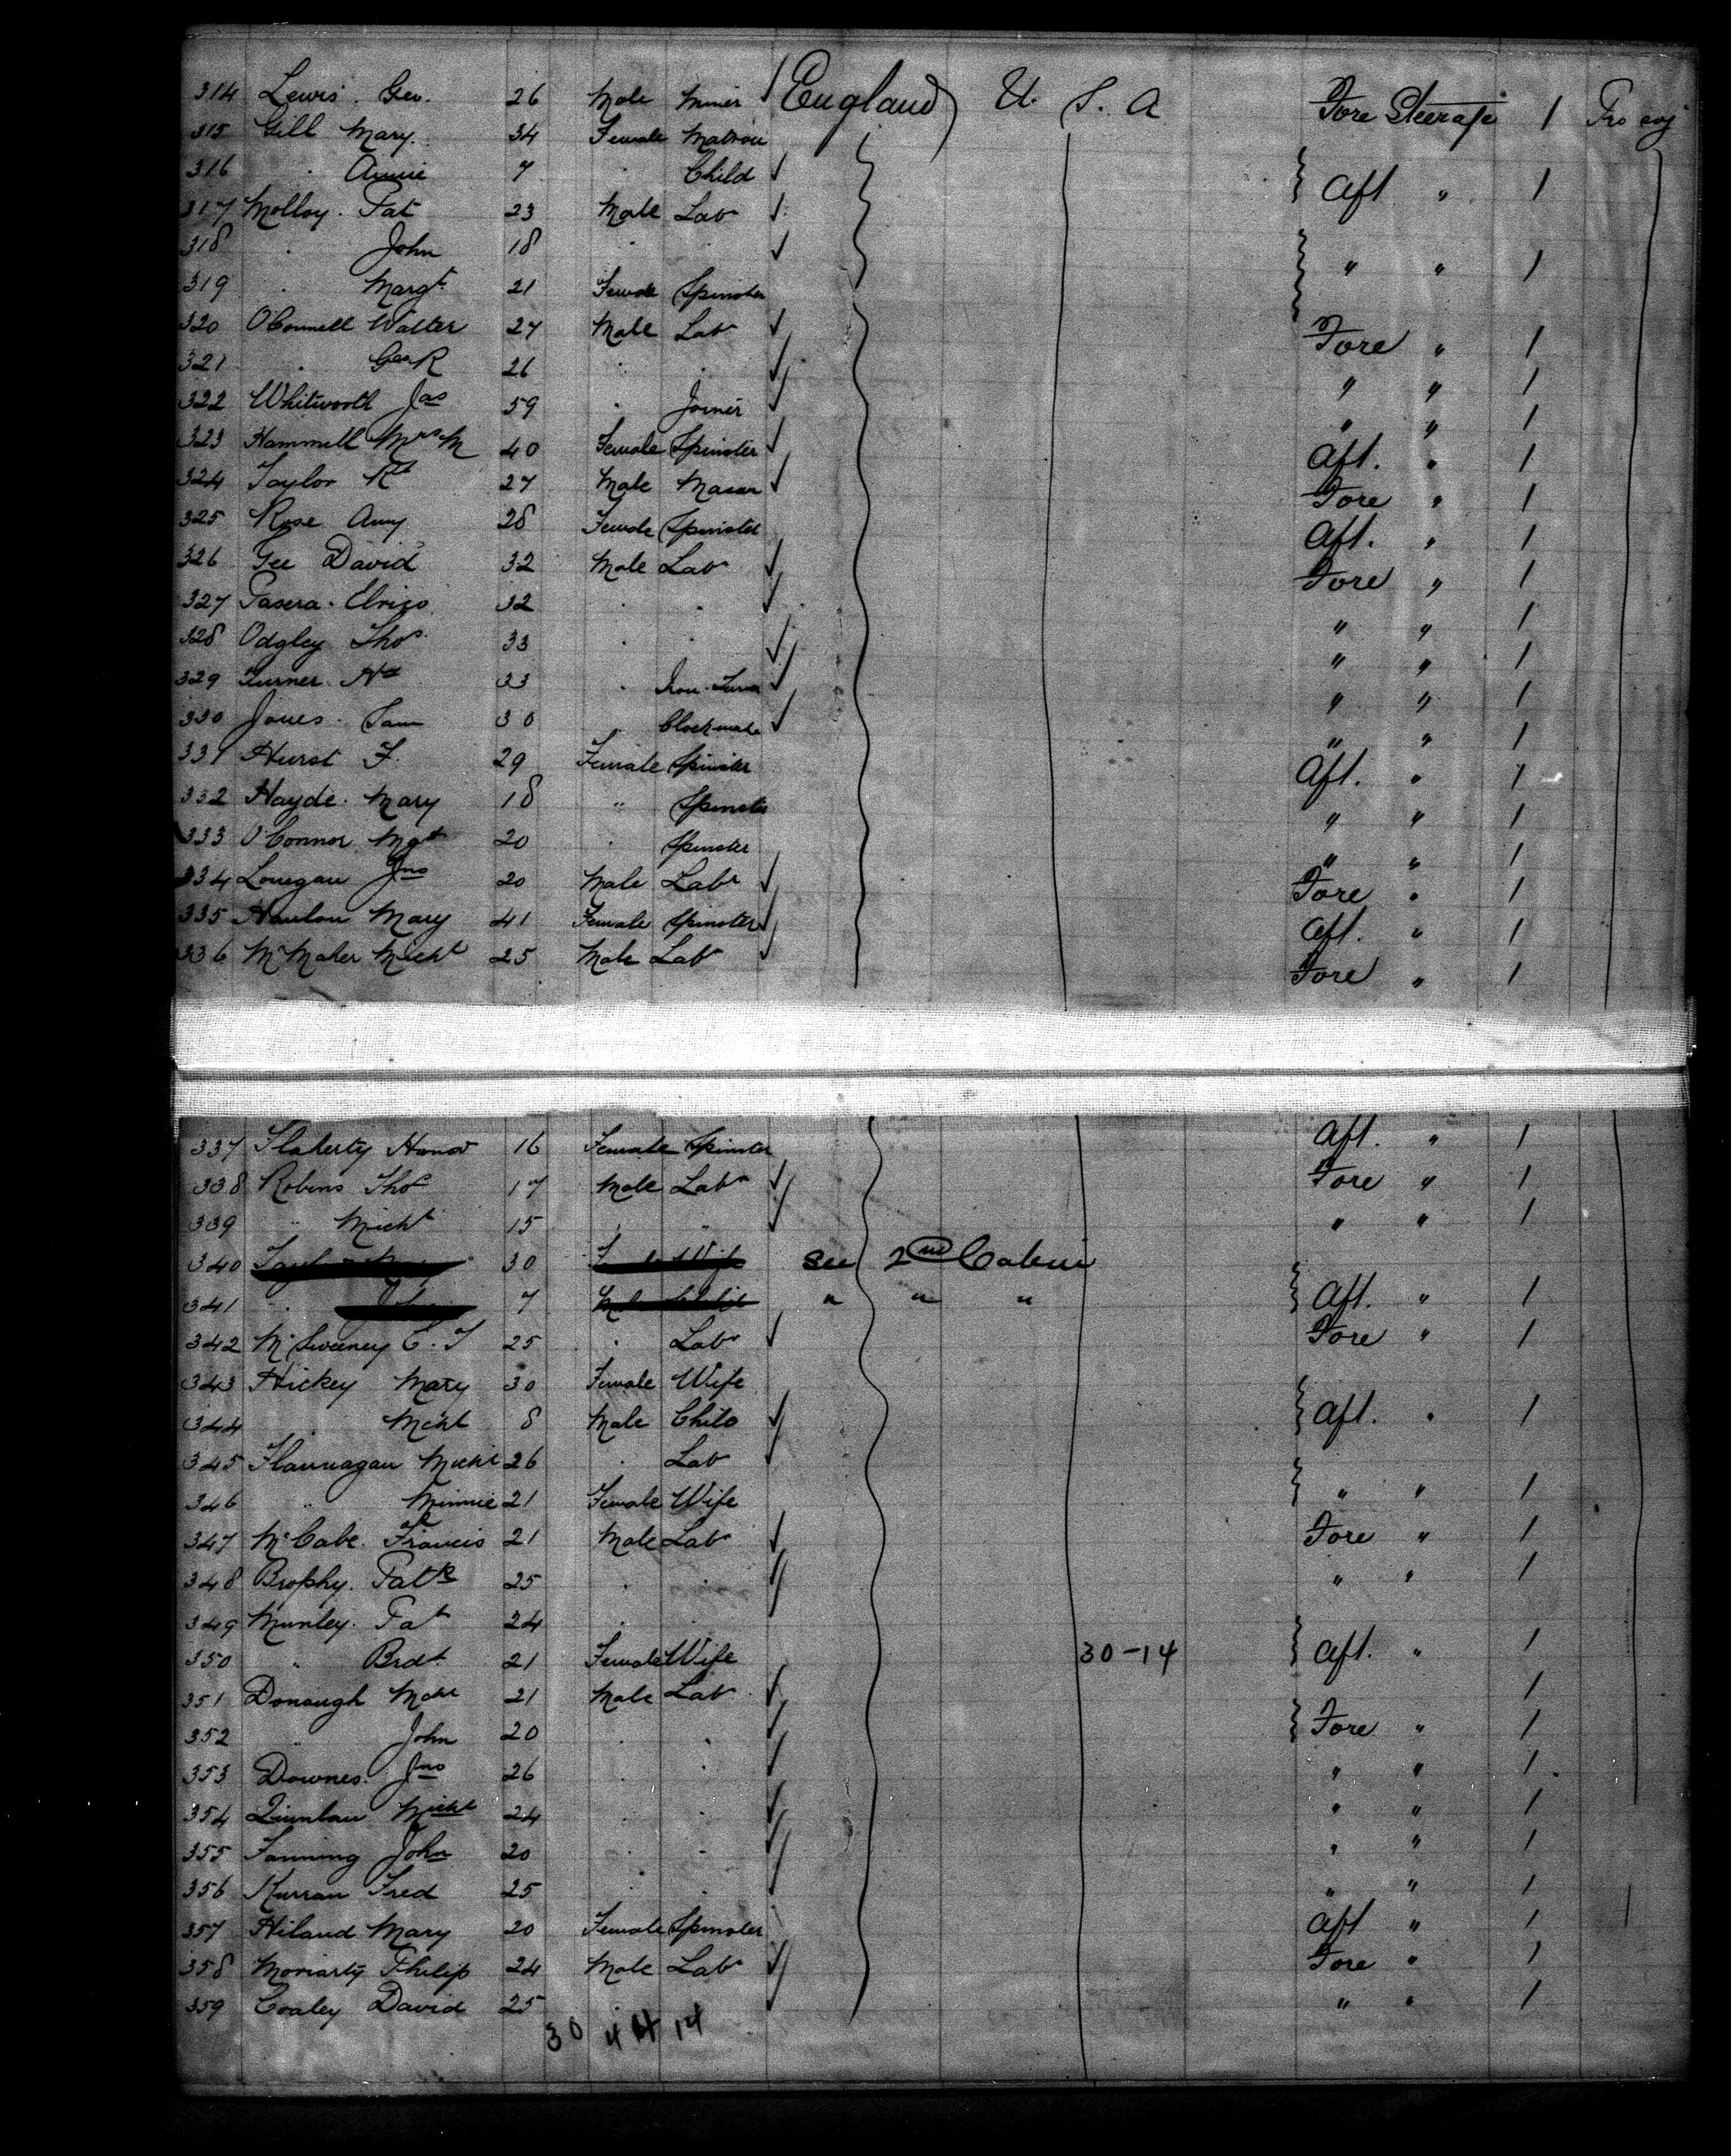 314 Lewis. Geo. 26 Male Miner England U. S. A Fore Steerage 1
315 Gill Mary. 34 Female Matron
316 . Annie 7 . Child Aft " 1
317 Molloy. Pat 23 Male Labr
318 . John 18 . . " " 1
319 . Margt. 21 Female Spinster
320 OConnell Walter 27 Male Labr Fore " 1
321 . Geo R 26 . . " " 1
322 Whitworth Jas 59 . Joiner " " 1
323 Hammell Mrs M 40 Female Spinster Aft. " 1
324 Taylor Rt 27 Male Mason Fore " 1
325 Rose Amy 28 Female Spinster Aft. " 1
326 Gee David 32 Male Labr Fore " 1
327 32 . . " " 1
328 Odgley Thos. 33 . . " " 1
329 Turner. 33 . Iron. " " 1
330 Jones. Sam 30 . Clockmake " " 1
331 Hurst F. 29 Female Spinster Aft. " 1
332 Hayde. Mary 18 " Spinster " " 1
333 O'Connor Mgt 20 . Spinster " " 1
334 Lonegan Jno 20 Male Labr Fore " 1
335 Hanlon Mary 41 Female Spinster Aft. " 1
336 McMaher Michl 25 Male Labr Fore " 1
337 Flaherty Honor 16 Female Spinster Aft. " 1
338 Robins Thos 17 Male Labr Fore " 1
339 " Michl 15 . " " " 1
340 30 Wife See 2nd Cabin
341 . 7 " " " Aft. " 1
342 McSweeney C. J 25 . Labr Fore " 1
343 Hickey Mary 30 Female Wife
344 . Michl 8 Male Child Aft. " 1
345 Flannagan Michl 26 . Labr
346 " Minnie 21 Female Wife " " 1
347 McCabe. Francis 21 Male Labr Fore " 1
348 Brophy. Patk 25 . . " " 1
349 Munley. Pat 24 .
350 " Brdt. 21 Female Wife 30-14 Aft. " 1
351 Donough Michl 21 Male Labr 1
352 " John 20 . . Fore " 1
353 Downes. Jno 26 . . " " 1
354 Quinlan Michl 24 . . " " 1
355 Fanning John 20 . . " " 1
356 Kurran Fred 25 . . " " 1
357 Hiland Mary 20 Female Spinster Aft " 1
358 Moriarty Philip 24 Male Labr Fore " 1
359 Coaley David 25 . " " 1
30 4 14